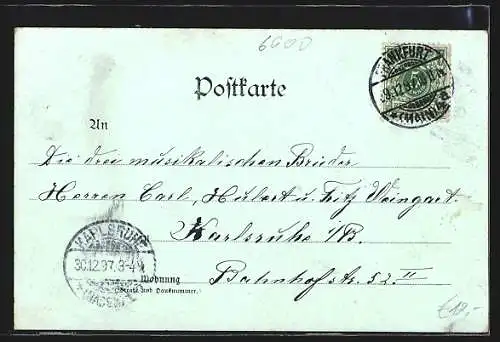 6600
Postkarte
FRANKFURT
30.12.97
*(MAIN)*
5
An
Die drei musikalischen Brüder
Herren Carl, Hubert u. Fritz Weingart.
Karlsruhe i/B.
KARLSRUHE
30.12.97. 3-4N
(BADEN)
Bahnhofstr. 52 II
Wohnung
(Straße und Hausnummer).
€12,-